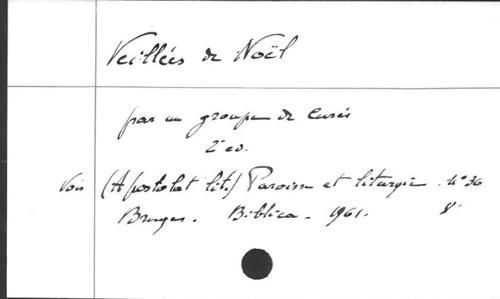 Veillées de Noël
par un groupe de curés
2e ed.
Vois (Apostolat lit.) Paroisse et liturgie. N° 36
Bruges. Biblica. 1961. 8°